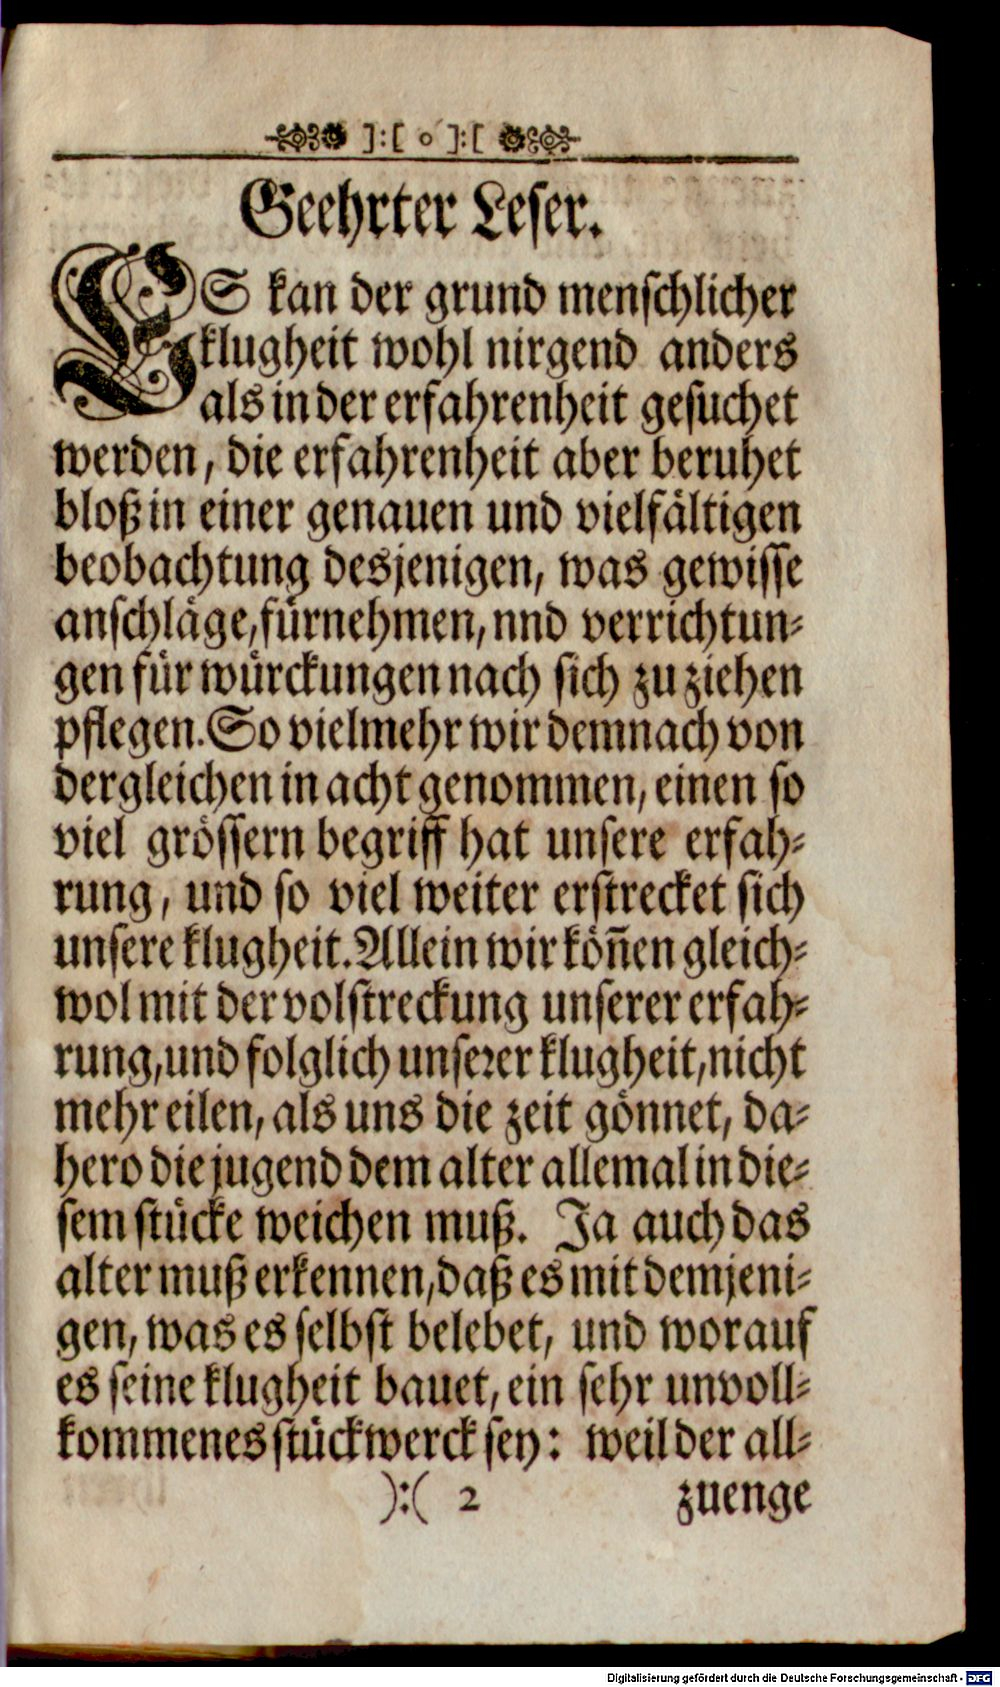 ]:[ o ]:[
Geehrter Leser.
ES kan der grund menschlicher
klugheit wohl nirgend anders
als in der erfahrenheit gesuchet
werden, die erfahrenheit aber beruhet
bloß in einer genauen und vielfältigen
beobachtung desjenigen, was gewisse
anschläge, fürnehmen, nnd verrichtun⸗
gen für würckungen nach sich zu ziehen
pflegen. So vielmehr wir demnach von
dergleichen in acht genommen, einen so
viel grössern begriff hat unsere erfah⸗
rung, und so viel weiter erstrecket sich
unsere klugheit. Allein wir köñen gleich⸗
wol mit der volstreckung unserer erfah⸗
rung, und folglich unseꝛer klugheit, nicht
mehr eilen, als uns die zeit gönnet, da⸗
hero die jugend dem alter allemal in die⸗
sem stücke weichen muß. Ja auch das
alter muß erkennen, daß es mit demjeni⸗
gen, was es selbst belebet, und worauf
es seine klugheit bauet, ein sehr unvoll⸗
kommenes stückwerck sey: weil der all⸗
):( 2 zuenge
Digitalisierung gefördert durch die Deutsche Forschungsgemeinschaft - DFG